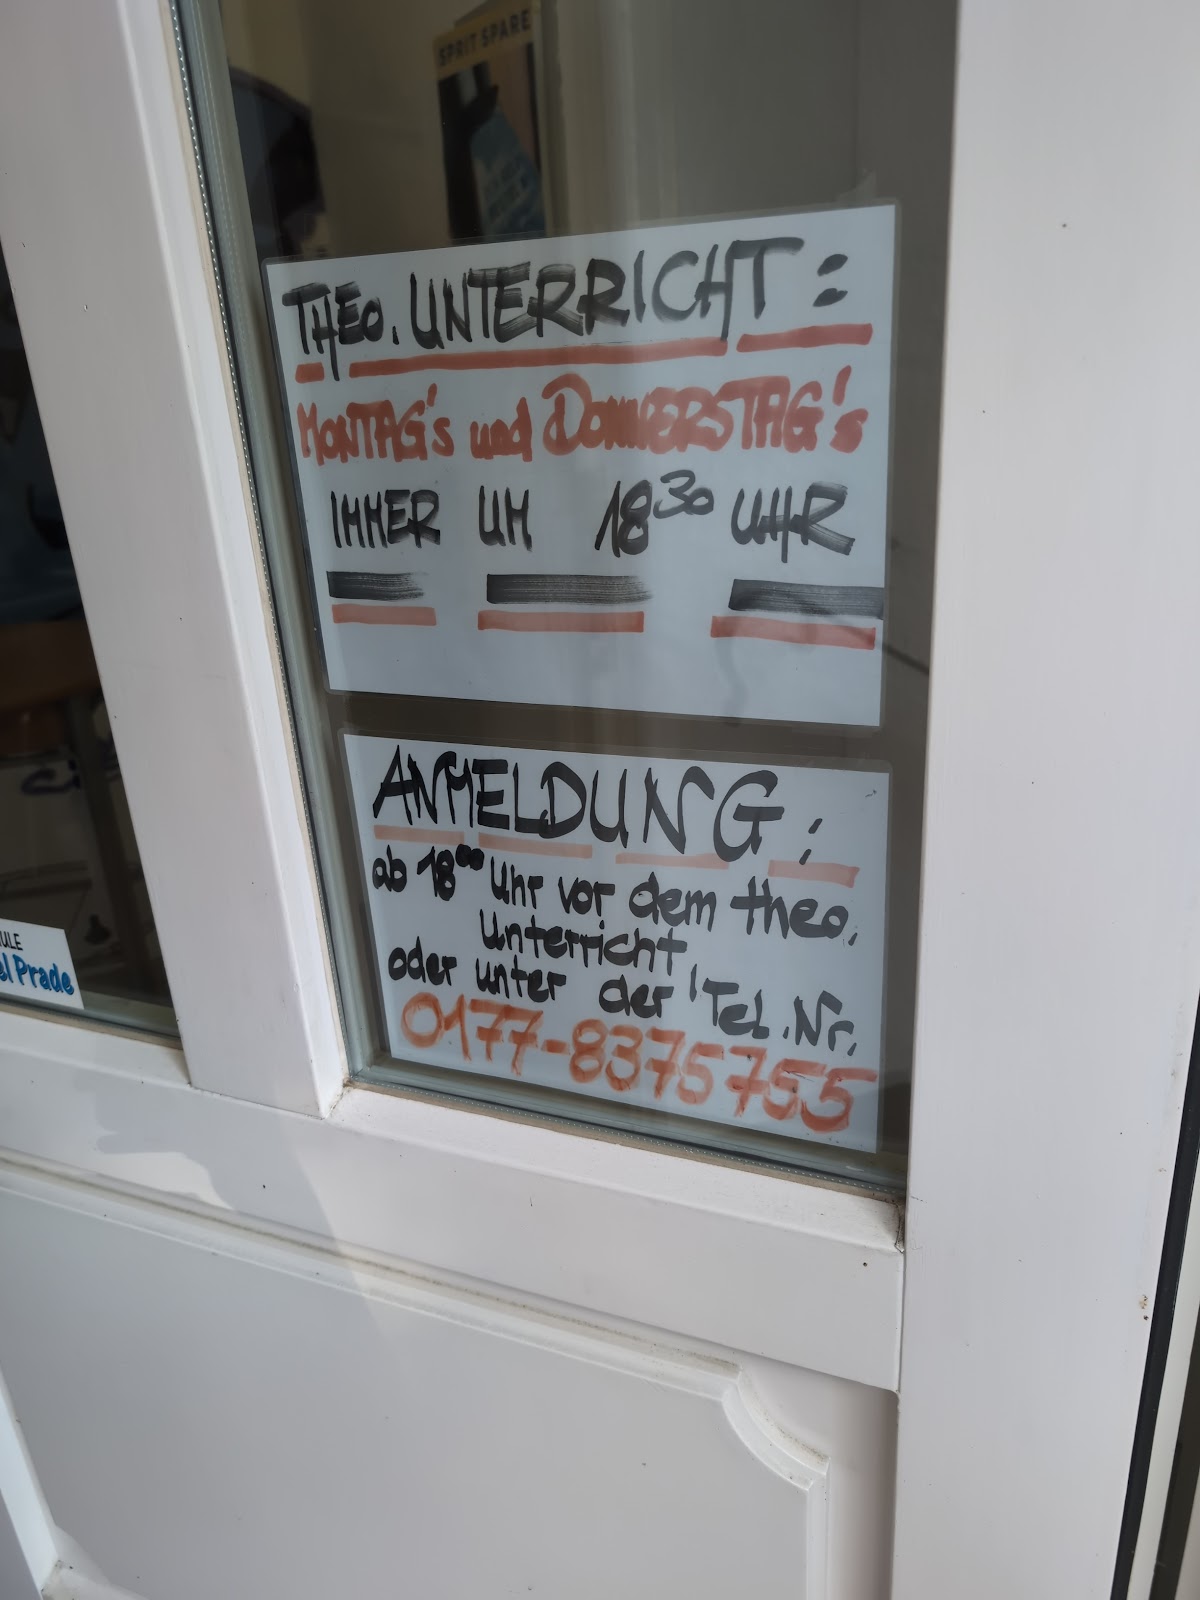 SPRIT SPARE
THEO. UNTERRICHT:
MONTAG's und DONNERSTAG's
IMMER UM 18³⁰ UHR
ANMELDUNG:
ab 18⁰⁰ Uhr vor dem theo.
Unterricht
oder unter der Tel.Nr.
0177-8375755
ULE
el Prade